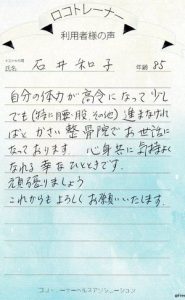 ロコトレーナー
利用者様の声
氏名 石井和子 年齢 85
自分の体力が高令になって少し
でも(特に腰・股 その他)進まなけれ
ばと かさい整骨院でお世話に
なっております 心身共に気持よく
なれる幸なひとときです。
頑張りましょう
これからもよろしくお願いいたします。